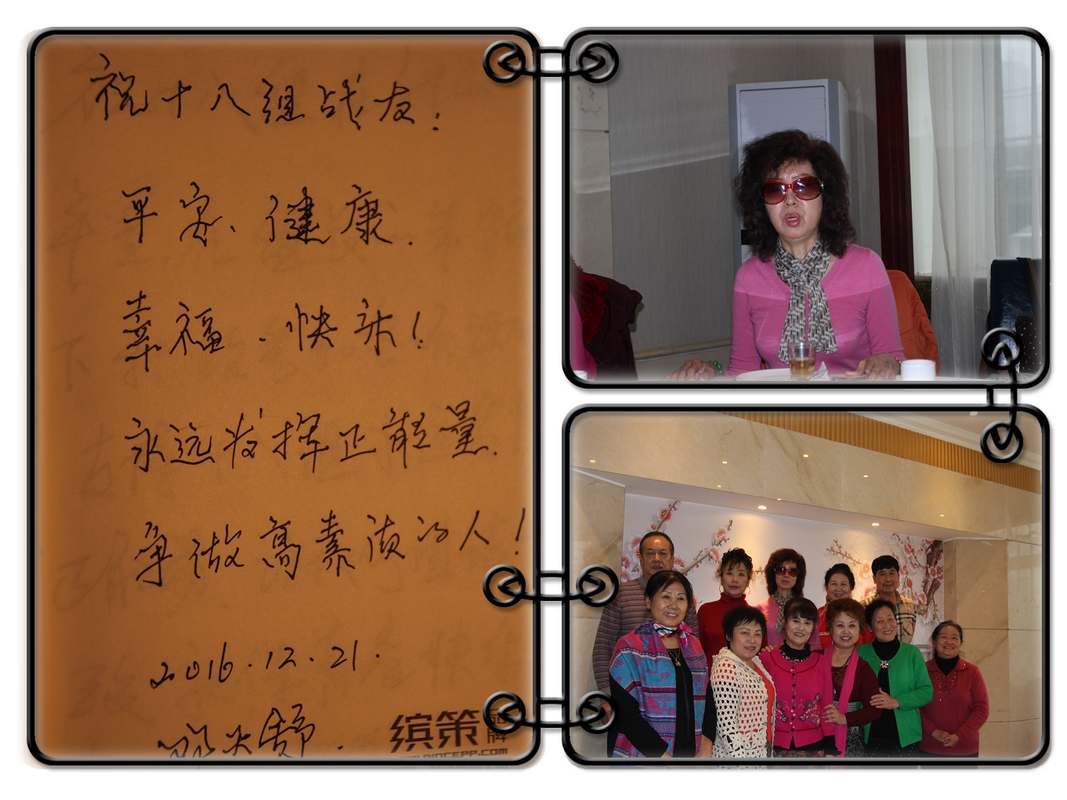 祝十八组战友：
平安、健康.
幸福.快乐！
永远发挥正能量.
争做高素质的人！
2016.12.21.
缤策牌